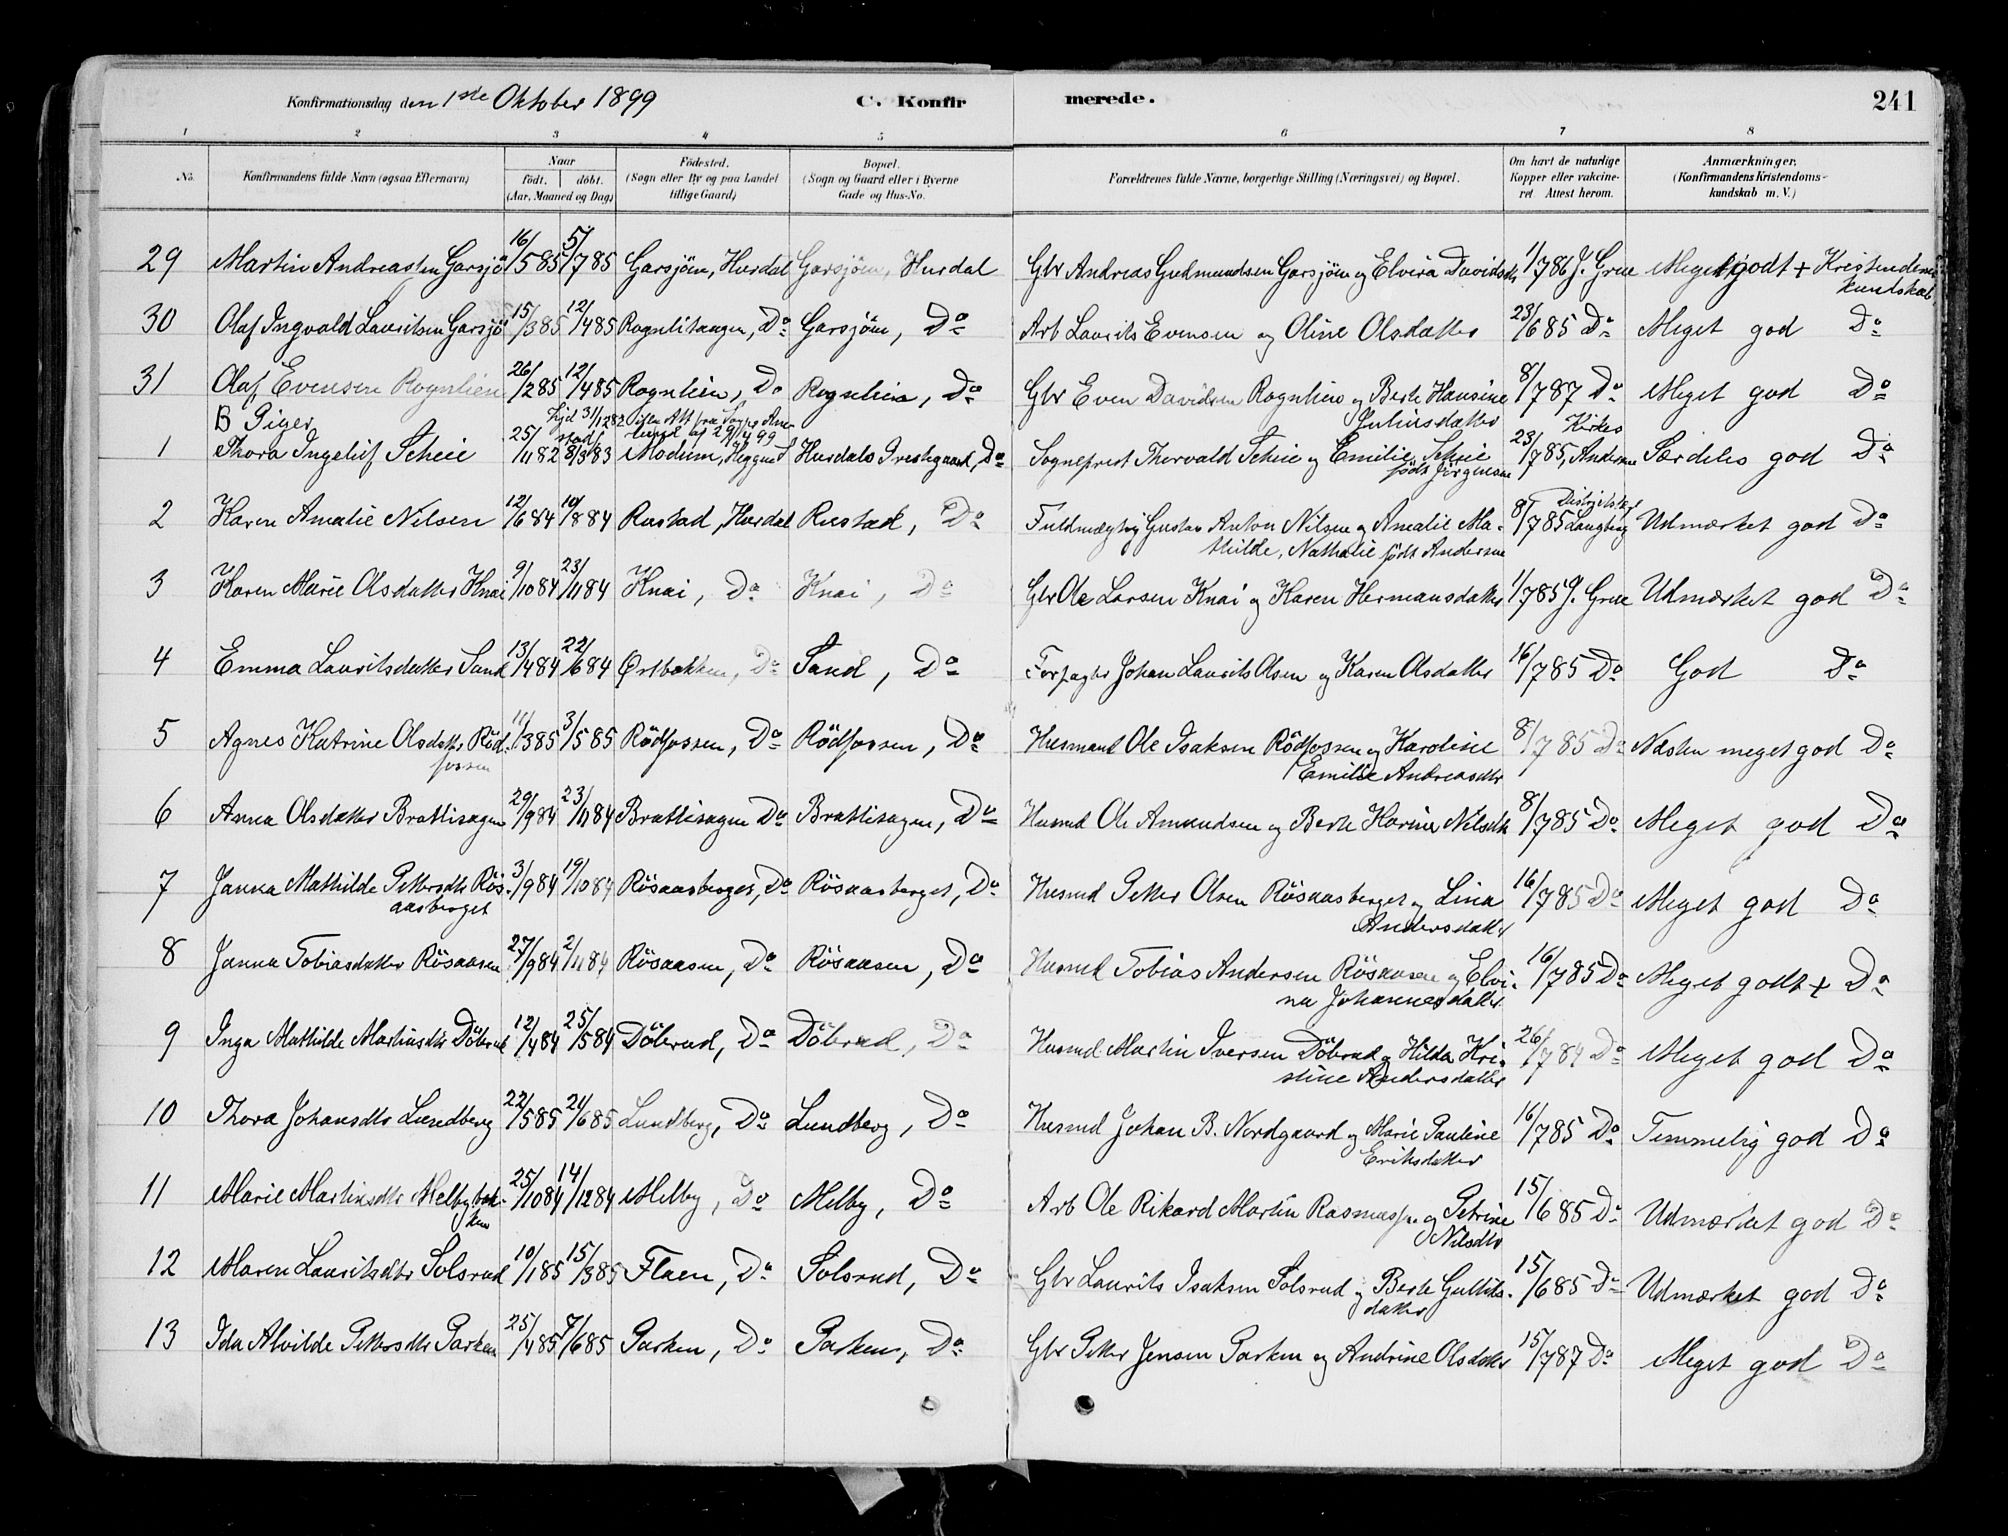 Konfirmationsdag den 1ste Oktober 1899 C. Konfirmerede. 241
1 2 3 4 5 6 7 8
No. Konfirmandens fulde Navn (ogsaa Efternavn) Naar født. døbt. (Aar, Maaned og Dag) Fødested. (Sogn eller By og paa Landet tillige Gaard) Bopæl. (Sogn og Gaard eller i Byerne Gade og Hus-No. Forældrenes fulde Navne, borgerlige Stilling (Næringsvei) og Bopæl. Om havt de naturlige Kopper eller vakcineret. Attest herom. Anmærkninger. (Konfirmandens Kristendomskundskab m. V.)
29 Martin Andreasten Garsjö 16/5 85 5/7 85 Garsjöen, Hurdal Garsjöen, Hurdal Gbr Andreas Gudmundsen Garsjöen og Elvira Davidsdtr 1/7 86 J. Grue Meget godt + Kristendoms
kundskab
30 Olaf Ingvald Lauritsen Garsjö 15/3 85 12/4 85 Rognlitangen, Do Garsjöen, Do Arb Laurits Evensen og Oline Olsdatter 23/6 85 Do Meget god Do
31 Olaf Evensen Rognlien 26/2 85 12/4 85 Rognlien, Do Rognlien, Do Gbr Even Davidsen Rognlien og Berte Hansine 8/7 87 Do Meget god Do
Juliusdatter
B Piger
1 Thora Ingelief Scheie 25/11 82 8/3 83 Modum, Heggen S Hurdals Prestegaard, Do Sogneprest Thorvald Scheie og Emilie Scheie 23/7 85, Andersen Særdeles god Do
født Jörgensen
2 Karen Amalie Nilsen 12/6 84 10/8 84 Rustad, Hurdal Rustad, Do Fuldmægtig Gustav Anton Nilsen og Amalie Ma- 8/7 85 Langberg Udmærket god Do
thilde, Nathalie født Andersen
3 Karen Marie Olsdatter Knai 9/10 84 23/11 84 Knai, Do Knai, Do Gbr Ole Larsen Knai og Karen Hermansdatter 1/7 85 J. Grue Udmærket god Do
4 Emma Lauritsdatter Sand 13/4 84 22/6 84 Østbakken, Do Sand, Do Forpagter Johan Laurits Olsen og Karen Olsdatter 16/7 85 Do God Do
5 Agnes Katrine Olsdatter Röd- 11/3 85 3/5 85 Rödfossen, Do Rödfossen, Do Husmand Ole Isaksen Rödfossen og Karoline 8/7 85 Do Næsten meget god Do
fossen Emilie Andreasdtr
6 Anna Olsdatter Brattisagen 29/9 84 23/11 84 Brattisagen Do Brattisagen, Do Husmd Ole Amundsen og Berte Karine Nilsdtr 8/7 85 Do Meget god Do
7 Janna Mathilde Pettersdtr Rös- 3/9 84 19/10 84 Rösaasberget, Do Rösaasberget, Do Husmd Petter Olsen Rösaasberget og Lina 16/7 85 Do Meget god Do
aasberget Andersdatter
8 Janna Tobiasdatter Rösaasen 27/9 84 2/11 84 Rösaasen, Do Rösaasen, Do Husmd Tobias Andersen Rösaasen og Elvi- 16/7 85 Do Meget godt + Do
na Johannesdatter
9 Inga Mathilde Martinsdtr Döbrud 12/4 84 25/5 84 Döbrud, Do Döbrud, Do Husmd Martin Iversen Döbrud og Hilda Kri- 26/7 84 Do Meget god Do
stine Andersdatter
10 Thora Johansdtr Lundberg 22/5 85 21/6 85 Lundberg, Do Lundberg, Do Husmd Johan B. Nordgaard og Marie Pauline 16/7 85 Do Temmelig god Do
Eriksdatter
11 Marie Martinsdtr Melbybak- 25/10 84 14/12 84 Melby, Do Melby, Do Arb Ole Rikard Martin Rasmussen og Petrine 15/6 85 Do Udmærket god Do
ken Nilsdtr
12 Maren Lauritsdtr Solsrud 10/1 85 15/3 85 Flaen, Do Solsrud, Do Gbr Laurits Isaksen Solsrud og Berte Gulliks- 15/6 85 Do Udmærket god Do
datter
13 Ida Alvilde Pettersdtr Parken 25/4 85 7/6 85 Parken, Do Parken, Do Gbr Petter Jensen Parken og Andrine Olsdatter 15/7 87 Do Meget god Do